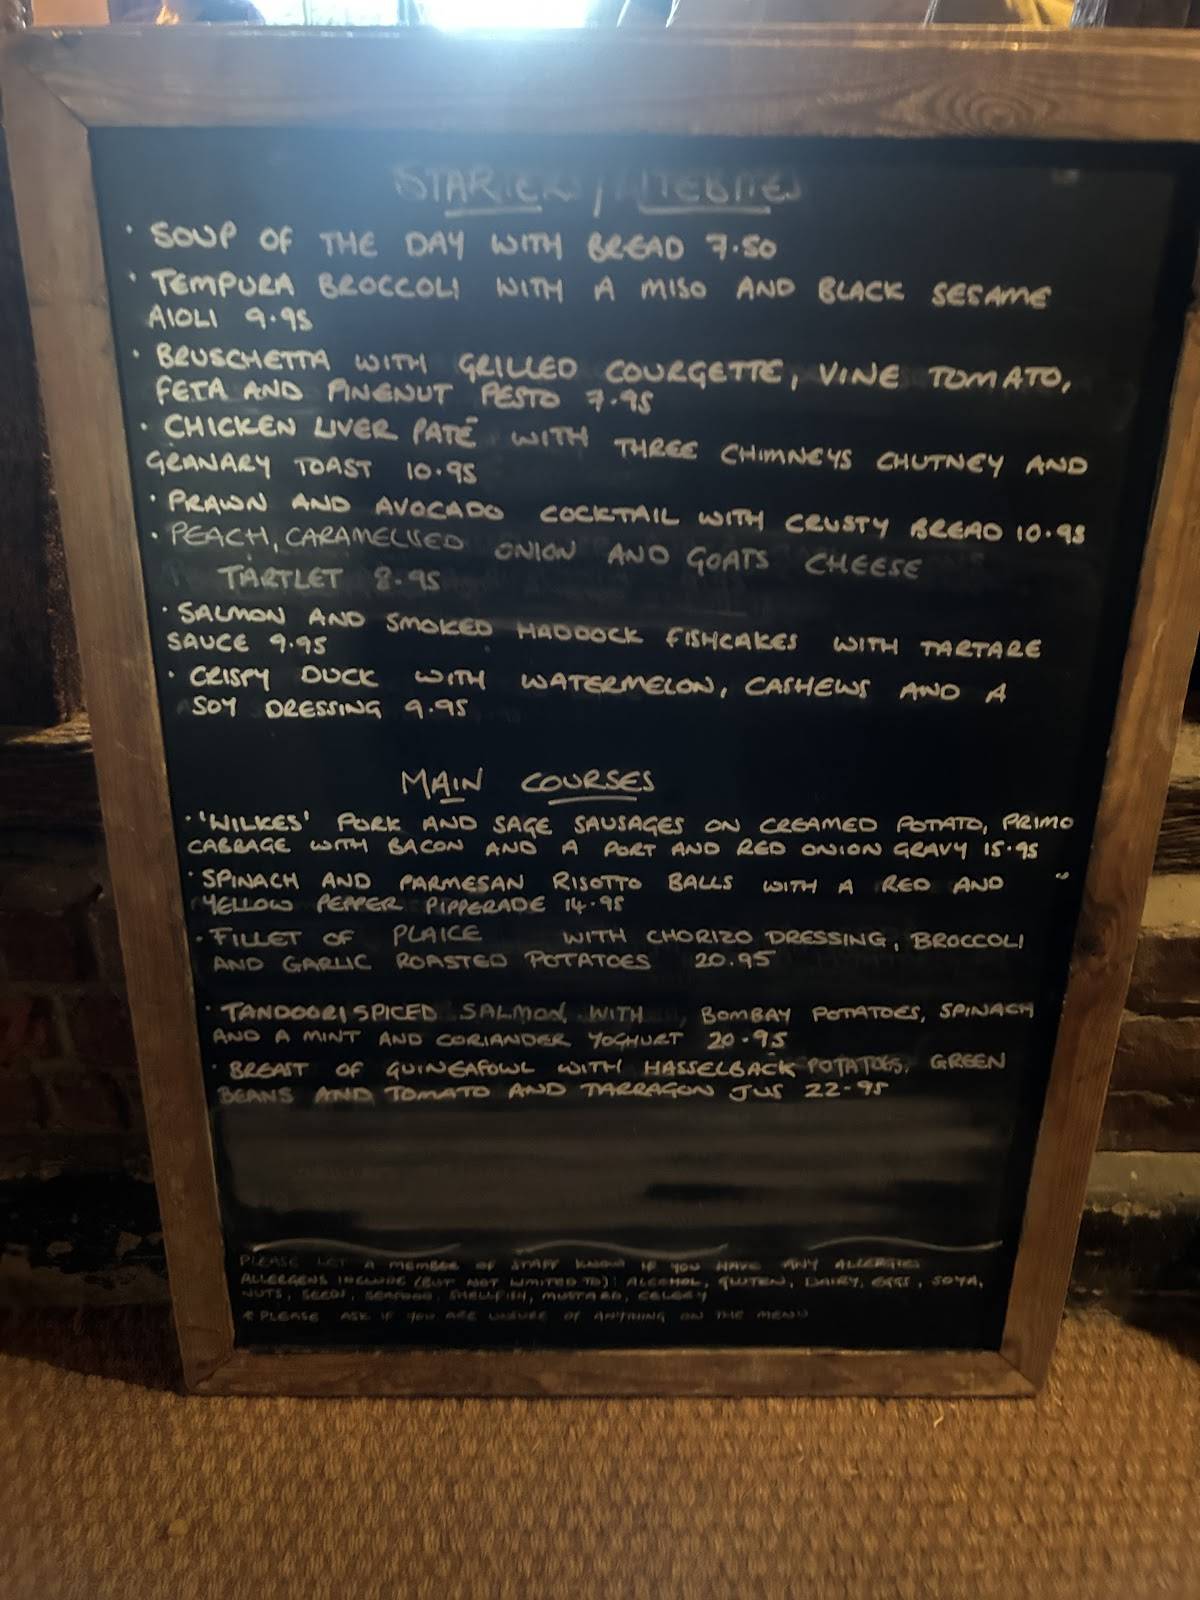 STARTERS / LITEBITES
• SOUP OF THE DAY WITH BREAD 7.50
• TEMPURA BROCCOLI WITH A MISO AND BLACK SESAME
AIOLI 9.95
• BRUSCHETTA WITH GRILLED COURGETTE, VINE TOMATO,
FETA AND PINENUT PESTO 7.95
• CHICKEN LIVER PATÉ WITH THREE CHIMNEYS CHUTNEY AND
GRANARY TOAST 10.95
• PRAWN AND AVOCADO COCKTAIL WITH CRUSTY BREAD 10.95
• PEACH, CARAMELISED ONION AND GOATS CHEESE
TARTLET 8.95
• SALMON AND SMOKED HADDOCK FISHCAKES WITH TARTARE
SAUCE 9.95
• CRISPY DUCK WITH WATERMELON, CASHEWS AND A
SOY DRESSING 9.95
MAIN COURSES
• 'WILKES' PORK AND SAGE SAUSAGES ON CREAMED POTATO, PRIMO
CABBAGE WITH BACON AND A PORT AND RED ONION GRAVY 15.95
• SPINACH AND PARMESAN RISOTTO BALLS WITH A RED AND
YELLOW PEPPER PIPPERADE 14.95
• FILLET OF PLAICE WITH CHORIZO DRESSING, BROCCOLI
AND GARLIC ROASTED POTATOES 20.95
• TANDOORI SPICED SALMON WITH BOMBAY POTATOES, SPINACH
AND A MINT AND CORIANDER YOGHURT 20.95
• BREAST OF GUINEAFOWL WITH HASSELBACK POTATOES, GREEN
BEANS AND TOMATO AND TARRAGON JUS 22.95
PLEASE LET A MEMBER OF STAFF KNOW IF YOU HAVE ANY ALLERGIES
ALLERGENS INCLUDE (BUT NOT LIMITED TO): ALCOHOL, GLUTEN, DAIRY, EGGS, SOYA,
NUTS, SEEDS, SEAFOOD, SHELLFISH, MUSTARD, CELERY
* PLEASE ASK IF YOU ARE UNSURE OF ANYTHING ON THE MENU